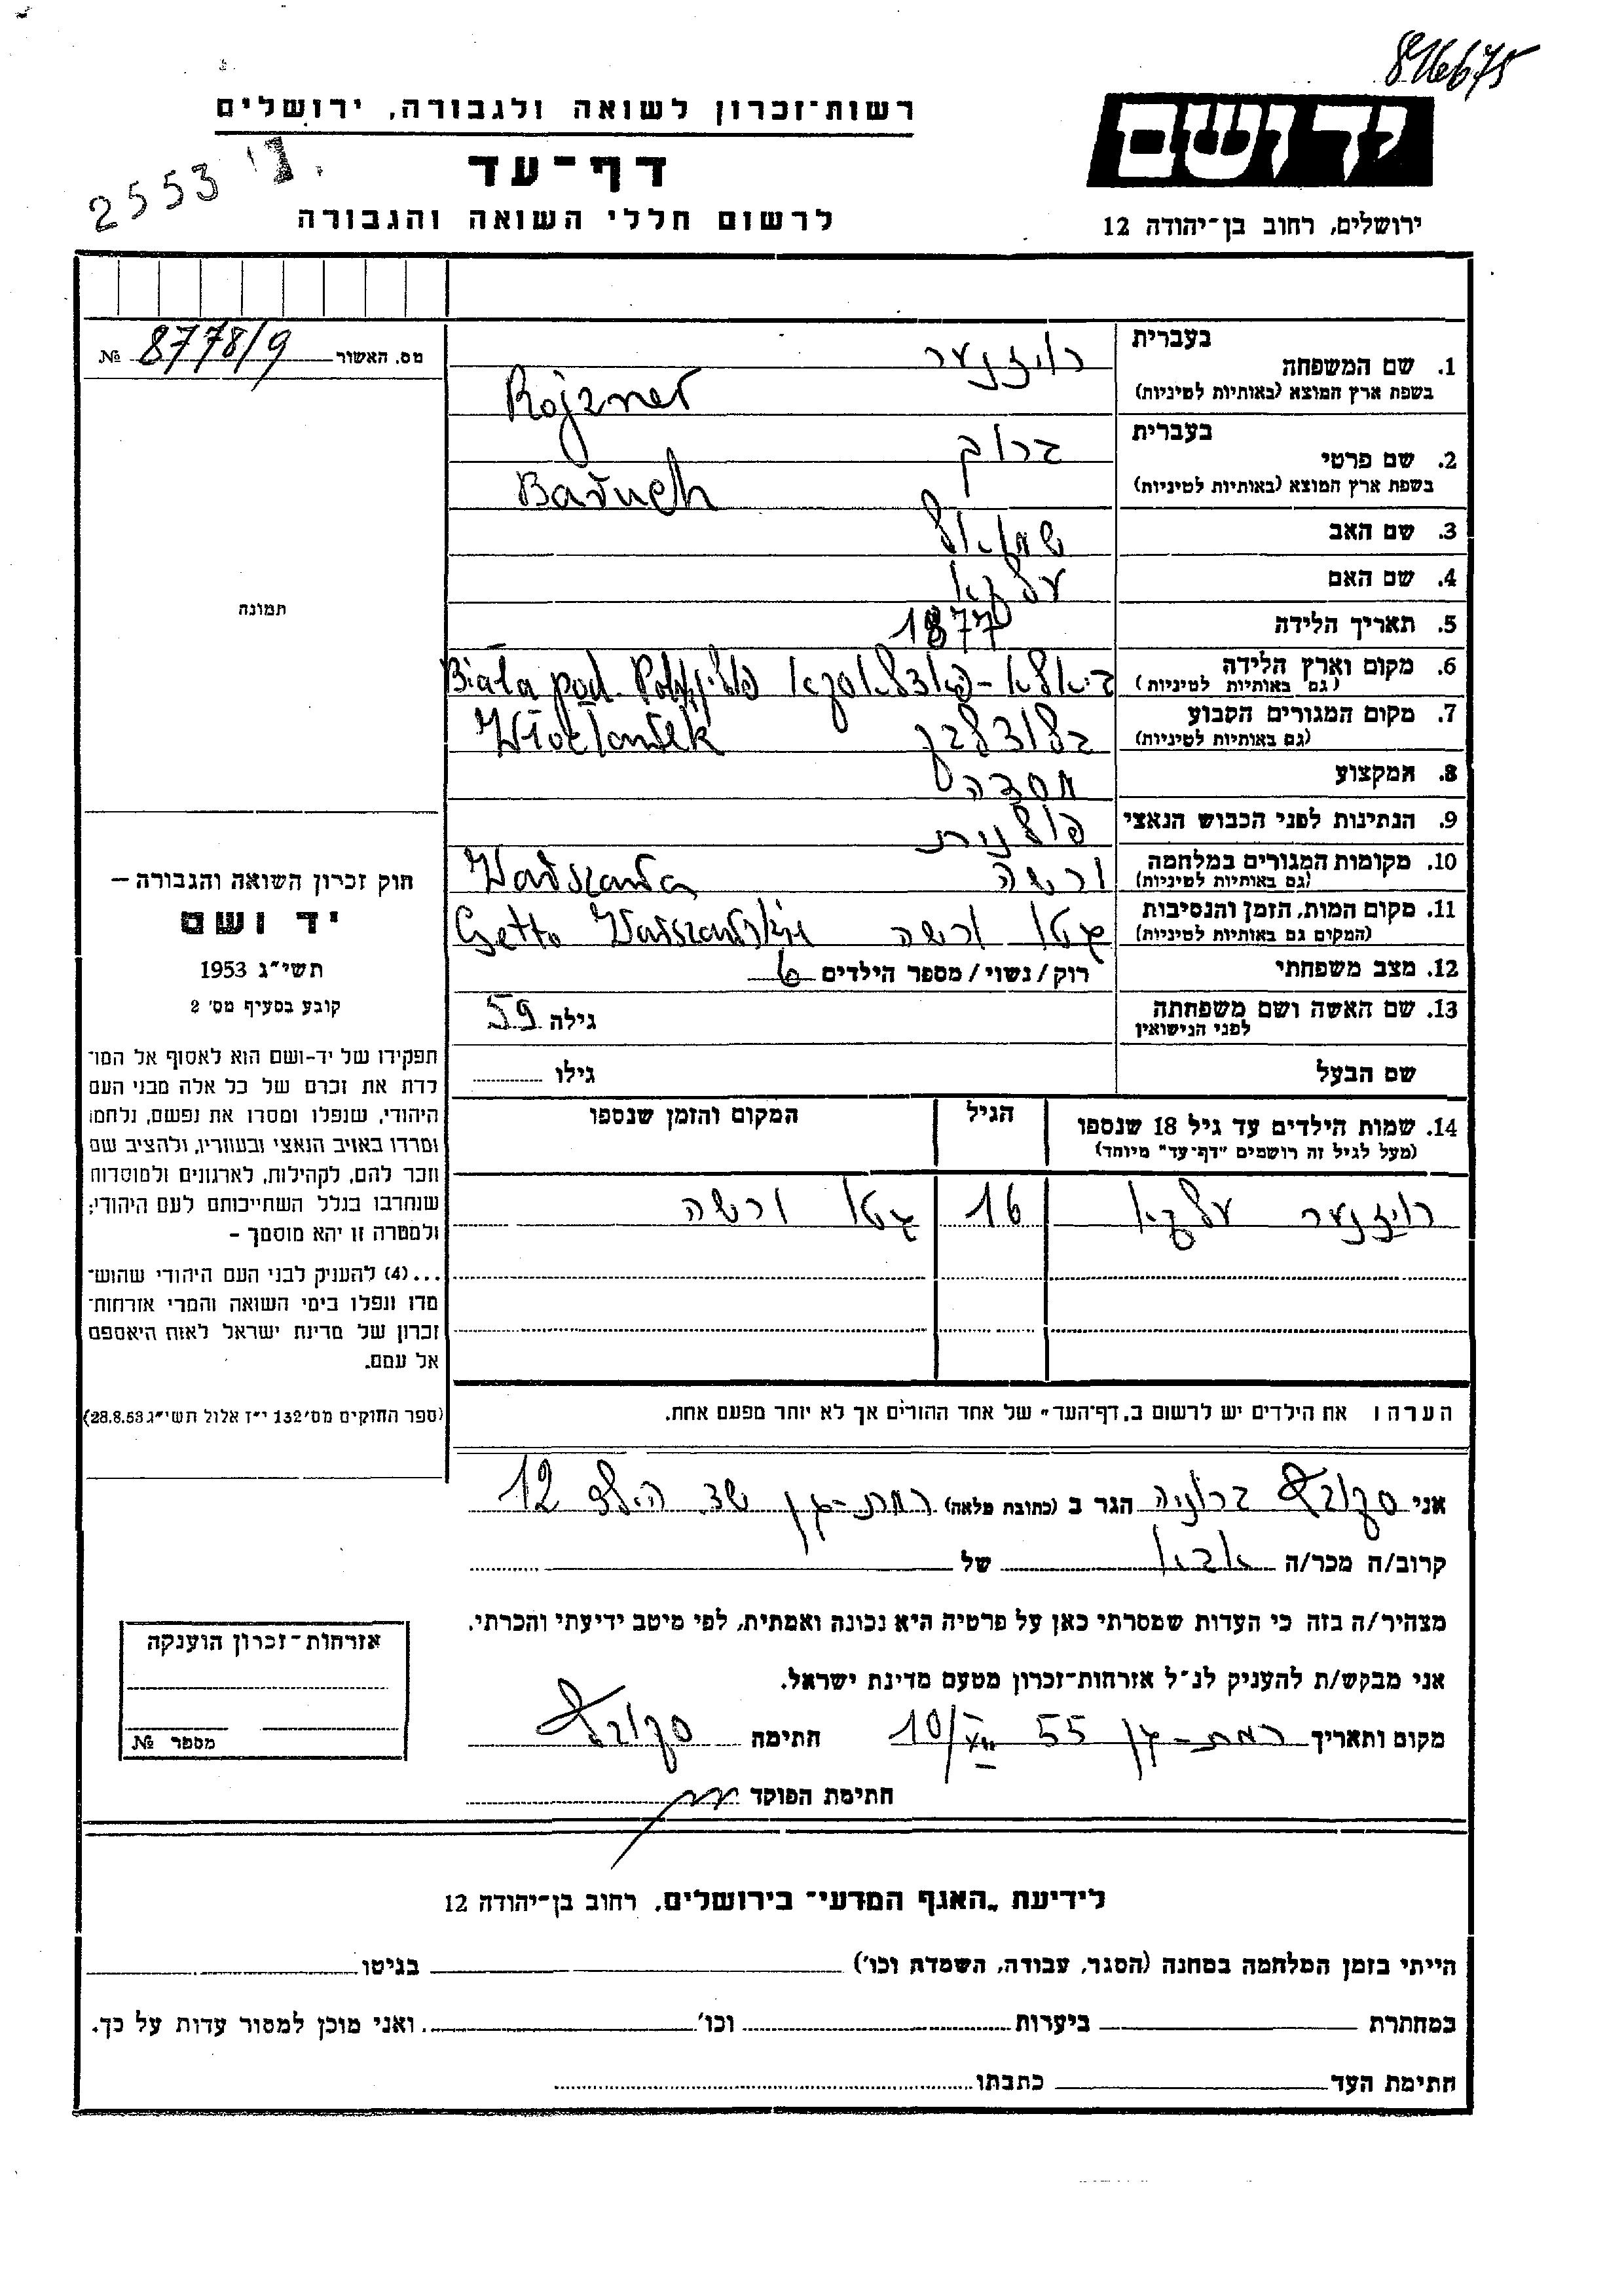 816675
רשות־זכרון לשואה ולגבורה, ירושלים
יד ושם
דף־עד
2553
לרשום חללי השואה והגבורה
ירושלים, רחוב בן־יהודה 12
מס. האשור 8778/9 №
בעברית
1. שם המשפחה רויזנער
בשפת ארץ המוצא (באותיות לטיניות) Rojzner
בעברית
2. שם פרטי ברוך
בשפת ארץ המוצא (באותיות לטיניות) Baruch
3. שם האב שמואל
4. שם האם
תמונה
5. תאריך הלידה 1877
6. מקום וארץ הלידה ביאלא-פאדלאסקא פולין Biała pod. Polska
(גם באותיות לטיניות)
7. מקום המגורים הקבוע Włocławek
(גם באותיות לטיניות)
8. המקצוע
9. הנתינות לפני הכבוש הנאצי פולנית
10. מקומות המגורים במלחמה ורשה Warszawa
(גם באותיות לטיניות)
11. מקום המות, הזמן והנסיבות גטו ורשה Getto Warszawskie
(המקום גם באותיות לטיניות)
12. מצב משפחתי רוק/נשוי/מספר הילדים 6
13. שם האשה ושם משפחתה גילה 59
לפני הנישואין
שם הבעל גילו
14. שמות הילדים עד גיל 18 שנספו הגיל המקום והזמן שנספו
(מעל לגיל זה רושמים "דף־עד" מיוחד)
רויזנער 16 גטו ורשה
חוק זכרון השואה והגבורה —
יד ושם
תשי״ג 1953
קובע בסעיף מס׳ 2
תפקידו של יד-ושם הוא לאסוף אל המו־
לדת את זכרם של כל אלה מבני העם
היהודי, שנפלו ומסרו את נפשם, נלחמו
ומרדו באויב הנאצי ובעוזריו, ולהציב שם
וזכר להם, לקהילות, לארגונים ולמוסדות
שנחרבו בגלל השתייכותם לעם היהודי;
ולמטרה זו יהא מוסמך —
...(4) להעניק לבני העם היהודי שהוש־
מדו ונפלו בימי השואה והמרי אזרחות־
זכרון של מדינת ישראל לאות היאספם
אל עמם.
(ספר החוקים מס׳ 132 י״ז אלול תשי״ג 28.8.53)
הערה: את הילדים יש לרשום ב„דף־העד" של אחד ההורים אך לא יותר מפעם אחת.
אני ברוניה הגר ב (כתובת מלאה) רמת-גן 12
קרוב/ה מכר/ה אבא של
מצהיר/ה בזה כי העדות שמסרתי כאן על פרטיה היא נכונה ואמתית, לפי מיטב ידיעתי והכרתי.
אני מבקש/ת להעניק לנ״ל אזרחות־זכרון מטעם מדינת ישראל.
מקום ותאריך רמת-גן 55 10/XII חתימה
חתימת הפוקד
אזרחות־זכרון הוענקה
מספר №
לידיעת „האגף המדעי״ בירושלים, רחוב בן־יהודה 12
הייתי בזמן המלחמה במחנה (הסגר, עבודה, השמדה וכו׳) בגיטו
במחתרת ביערות וכו׳ ואני מוכן למסור עדות על כך.
חתימת העד כתבתו